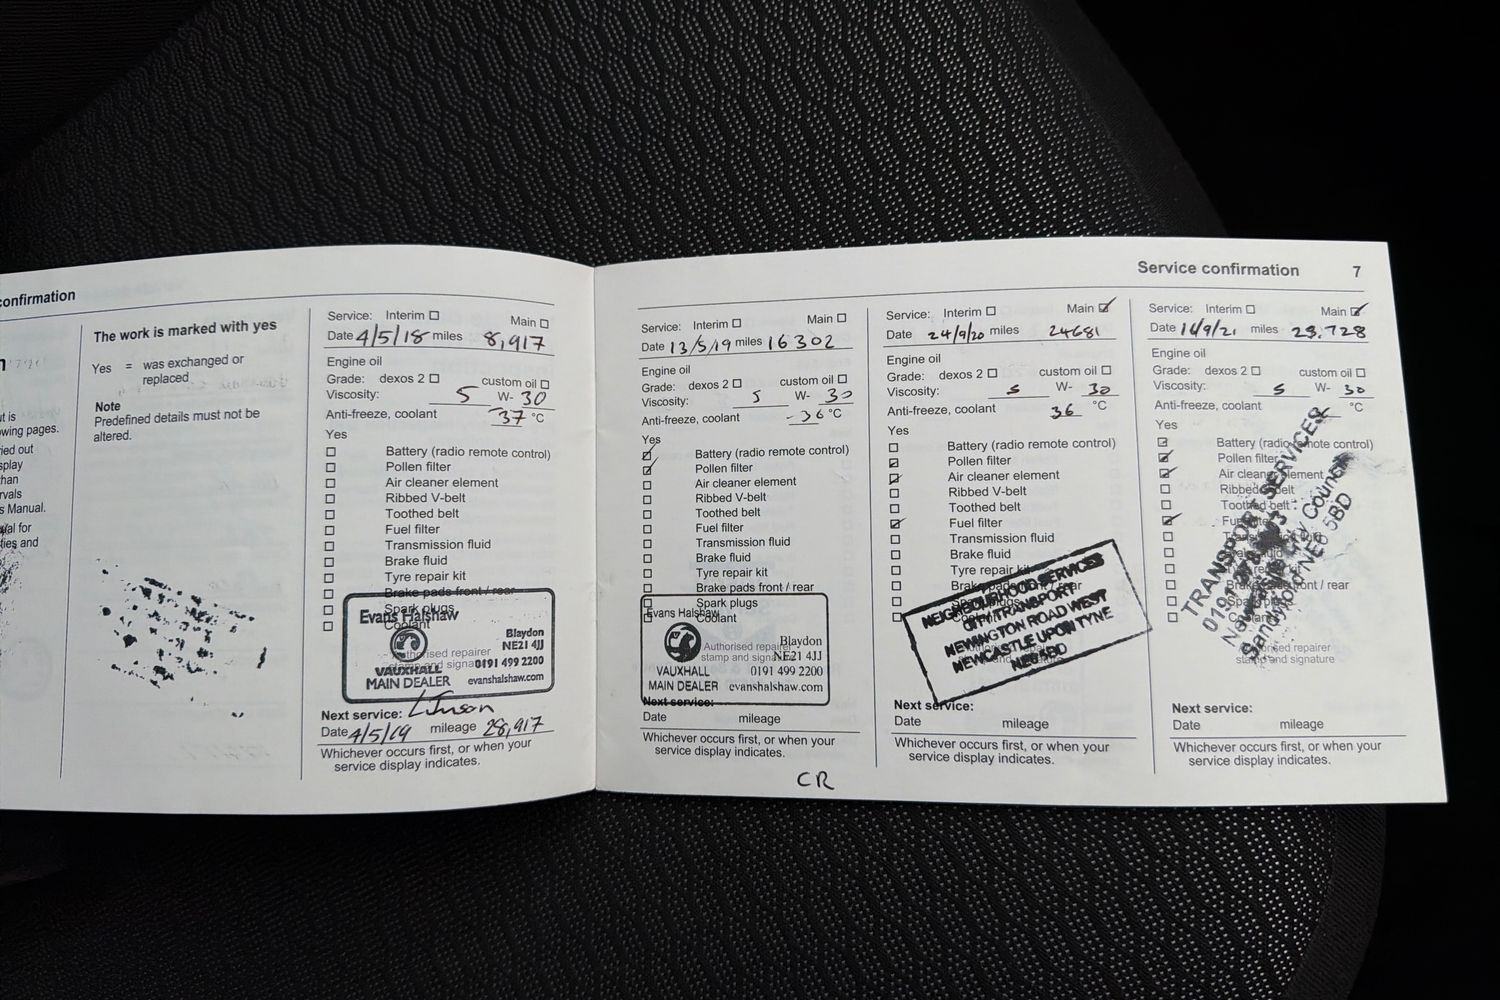 confirmation
The work is marked with yes
Yes = was exchanged or
replaced
Note
Predefined details must not be
altered.
t is
wing pages.
ied out
splay
than
rvals
s Manual.
al for
ties and
Service: Interim Main
Date 4/5/18 miles 8,917
Engine oil
Grade: dexos 2 custom oil
Viscosity: 5 W- 30
Anti-freeze, coolant -37 °C
Yes
Battery (radio remote control)
Pollen filter
Air cleaner element
Ribbed V-belt
Toothed belt
Fuel filter
Transmission fluid
Brake fluid
Tyre repair kit
Brake pads front / rear
Spark plugs
Coolant
Evans Halshaw
Blaydon
NE21 4JJ
Authorised repairer
stamp and signa
0191 499 2200
VAUXHALL
MAIN DEALER evanshalshaw.com
Next service:
Date 4/5/19 mileage 28,917
Whichever occurs first, or when your
service display indicates.
Service confirmation 7
Service: Interim Main
Date 13/5/19 miles 16302
Engine oil
Grade: dexos 2 custom oil
Viscosity: 5 W- 30
Anti-freeze, coolant -36 °C
Yes
Battery (radio remote control)
Pollen filter
Air cleaner element
Ribbed V-belt
Toothed belt
Fuel filter
Transmission fluid
Brake fluid
Tyre repair kit
Brake pads front / rear
Spark plugs
Coolant
Evans Halshaw
Blaydon
Authorised repairer
stamp and signa NE21 4JJ
VAUXHALL 0191 499 2200
MAIN DEALER evanshalshaw.com
Next service:
Date mileage
Whichever occurs first, or when your
service display indicates.
CR
Service: Interim Main
Date 24/9/20 miles 24681
Engine oil
Grade: dexos 2 custom oil
Viscosity: 5 W- 30
Anti-freeze, coolant 36 °C
Yes
Battery (radio remote control)
Pollen filter
Air cleaner element
Ribbed V-belt
Toothed belt
Fuel filter
Transmission fluid
Brake fluid
Tyre repair kit
Brake pads rear
NEIGHBOURHOOD SERVICES
CITY TRANSPORT
NEWINGTON ROAD WEST
NEWCASTLE UPON TYNE
Next service:
Date mileage
Whichever occurs first, or when your
service display indicates.
Service: Interim Main
Date 16/9/21 miles 29.728
Engine oil
Grade: dexos 2 custom oil
Viscosity: 5 W- 30
Anti-freeze, coolant °C
Yes
Battery (radio remote control)
Pollen filter
Air cleaner element
Ribbed belt
Toothed belt
Fuel filter
Brake pads front / rear
TRANSPORT SERVICES
City Council
NE6 5BD
repairer
stamp and signature
Next service:
Date mileage
Whichever occurs first, or when your
service display indicates.